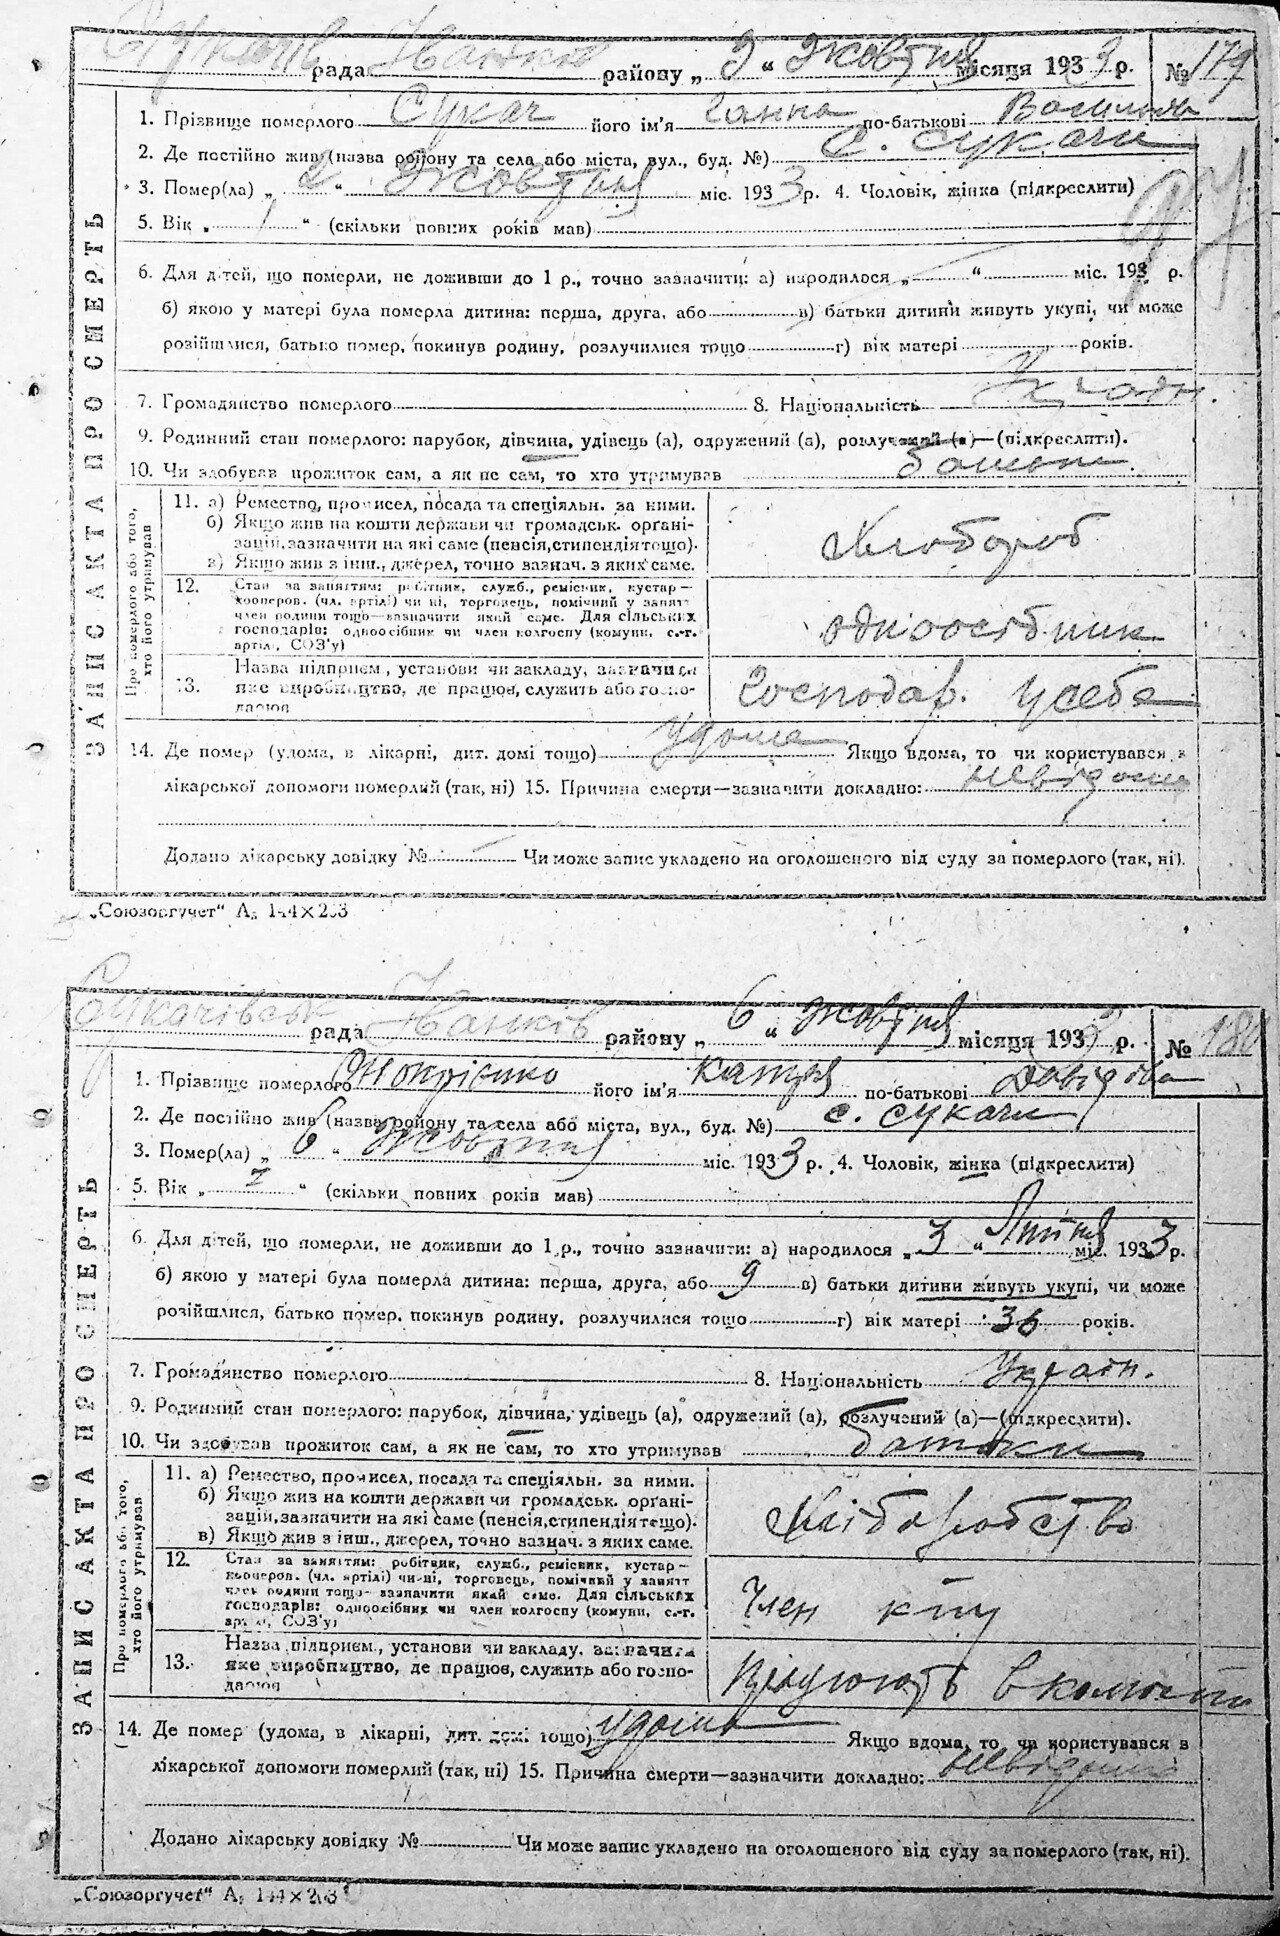 Сукачів рада Іванків району „ 3 “ Жовтня місяця 1933 р. № 179
ЗАПИС АКТА ПРО СМЕРТЬ
1. Прізвище померлого Сукач його ім'я Ганна по-батькові Василівна
2. Де постійно жив (назва району та села або міста, вул., буд. №) с. Сукачи
3. Помер(ла) „ 2 “ Жовтня міс. 1933 р. 4. Чоловік, жінка (підкреслити)
5. Вік „ 1 “ (скільки повних років мав)
6. Для дітей, що померли, не доживши до 1 р., точно зазначити: а) народилося „ “ міс. 193 р.
б) якою у матері була померла дитина: перша, друга, або в) батьки дитини живуть укупі, чи може
розійшлися, батько помер, покинув родину, розлучилися тощо г) вік матері років.
7. Громадянство померлого 8. Національність Україн.
9. Родинний стан померлого: парубок, дівчина, удівець (а), одружений (а), розлучений (а)—(підкреслити).
10. Чи здобував прожиток сам, а як не сам, то хто утримував батьки
Про померлого або того, хто його утримував
11. а) Ремество, промисел, посада та спеціяльн. за ними.
б) Якщо жив на кошти держави чи громадськ. орґані-
зацій, зазначити на які саме (пенсія, стипендія тощо).
в) Якщо жив з інш., джерел, точно зазнач. з яких саме.
Хлібороб
12. Стан за заняттям: робітник, служб., ремісник, кустар—
кооперов. (чл. артілі) чи ні, торговець, помічний у занятт
член родини тощо—зазначити який саме. Для сільських
господарів: одноосібник чи член колгоспу (комуни, с.-г.
артілі, СОЗ'у)
одноосібник
13. Назва підприєм., установи чи закладу, зазначити
яке виробництво, де працює, служить або госпо-
дарює
Господар. у себе
14. Де помер (удома, в лікарні, дит. домі тощо) удома Якщо вдома, то чи користувався з
лікарської допомоги померлий (так, ні) 15. Причина смерти—зазначити докладно: невідома
Додано лікарську довідку № Чи може запис укладено на оголошеного від суду за померлого (так, ні).
„Союзоргучет“ А, 144×203
Сукачівськ рада Іванків району „ 6 “ Жовтня місяця 1933 р. № 180
ЗАПИС АКТА ПРО СМЕРТЬ
1. Прізвище померлого його ім'я Катря по-батькові Давідова
2. Де постійно жив (назва району та села або міста, вул., буд. №) с. Сукачи
3. Помер(ла) „ 6 “ Жовтня міс. 1933 р. 4. Чоловік, жінка (підкреслити)
5. Вік „ “ (скільки повних років мав)
6. Для дітей, що померли, не доживши до 1 р., точно зазначити: а) народилося „ 3 “ Липня міс. 1933 р.
б) якою у матері була померла дитина: перша, друга, або 9 в) батьки дитини живуть укупі, чи може
розійшлися, батько помер, покинув родину, розлучилися тощо г) вік матері 36 років.
7. Громадянство померлого 8. Національність Україн.
9. Родинний стан померлого: парубок, дівчина, удівець (а), одружений (а), розлучений (а)—(підкреслити).
10. Чи здобував прожиток сам, а як не сам, то хто утримував батьки
Про померлого або того, хто його утримував
11. а) Ремество, промисел, посада та спеціяльн. за ними.
б) Якщо жив на кошти держави чи громадськ. орґані-
зацій, зазначити на які саме (пенсія, стипендія тощо).
в) Якщо жив з інш., джерел, точно зазнач. з яких саме.
Хліборобство
12. Стан за заняттям: робітник, служб., ремісник, кустар—
кооперов. (чл. артілі) чи ні, торговець, помічний у занятт
член родини тощо—зазначити який саме. Для сільських
господарів: одноосібник чи член колгоспу (комуни, с.-г.
артілі, СОЗ'у)
Член
13. Назва підприєм., установи чи закладу, зазначити
яке виробництво, де працює, служить або госпо-
дарює
Працюють в колгоспі
14. Де помер (удома, в лікарні, дит. домі тощо) удома Якщо вдома, то чи користувався з
лікарської допомоги померлий (так, ні) 15. Причина смерти—зазначити докладно: невідома
Додано лікарську довідку № Чи може запис укладено на оголошеного від суду за померлого (так, ні).
„Союзоргучет“ А, 144×203